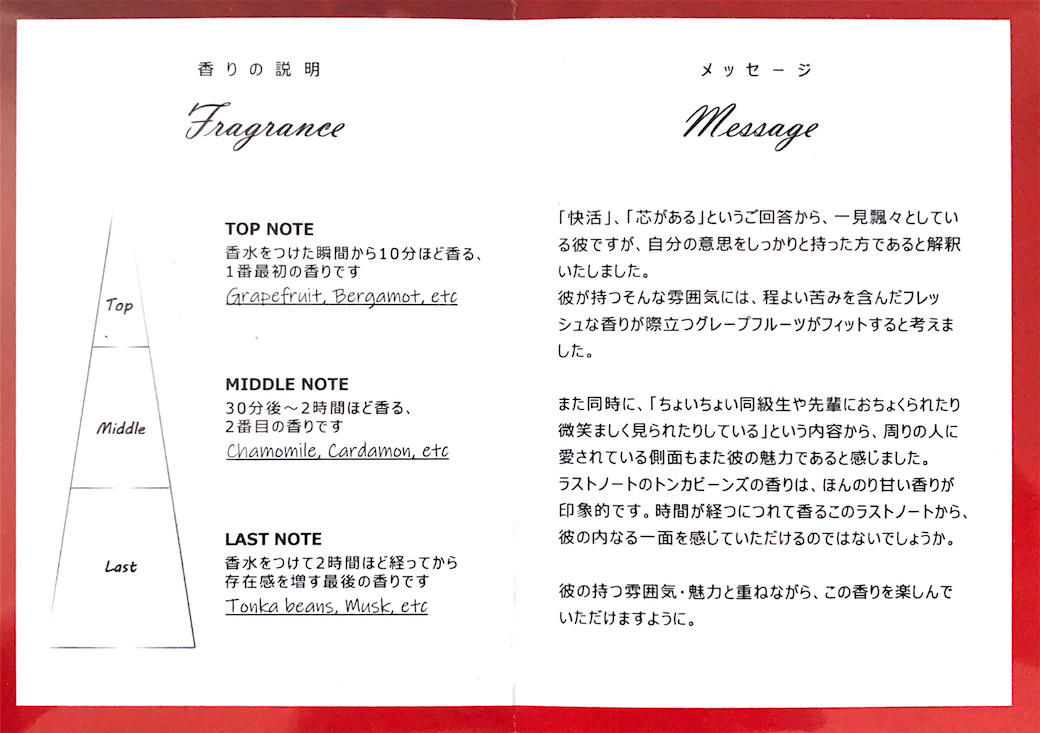 香りの説明
Fragrance
Top
Middle
Last
TOP NOTE
香水をつけた瞬間から10分ほど香る、
1番最初の香りです
Grapefruit, Bergamot, etc
MIDDLE NOTE
30分後～2時間ほど香る、
2番目の香りです
Chamomile, Cardamon, etc
LAST NOTE
香水をつけて2時間ほど経ってから
存在感を増す最後の香りです
Tonka beans, Musk, etc
メッセージ
Message
「快活」、「芯がある」というご回答から、一見飄々としてい
る彼ですが、自分の意思をしっかりと持った方であると解釈
いたしました。
彼が持つそんな雰囲気には、程よい苦みを含んだフレッ
シュな香りが際立つグレープフルーツがフィットすると考えま
した。
また同時に、「ちょいちょい同級生や先輩におちょくられたり
微笑ましく見られたりしている」という内容から、周りの人に
愛されている側面もまた彼の魅力であると感じました。
ラストノートのトンカビーンズの香りは、ほんのり甘い香りが
印象的です。時間が経つにつれて香るこのラストノートから、
彼の内なる一面を感じていただけるのではないでしょうか。
彼の持つ雰囲気・魅力と重ねながら、この香りを楽しんで
いただけますように。